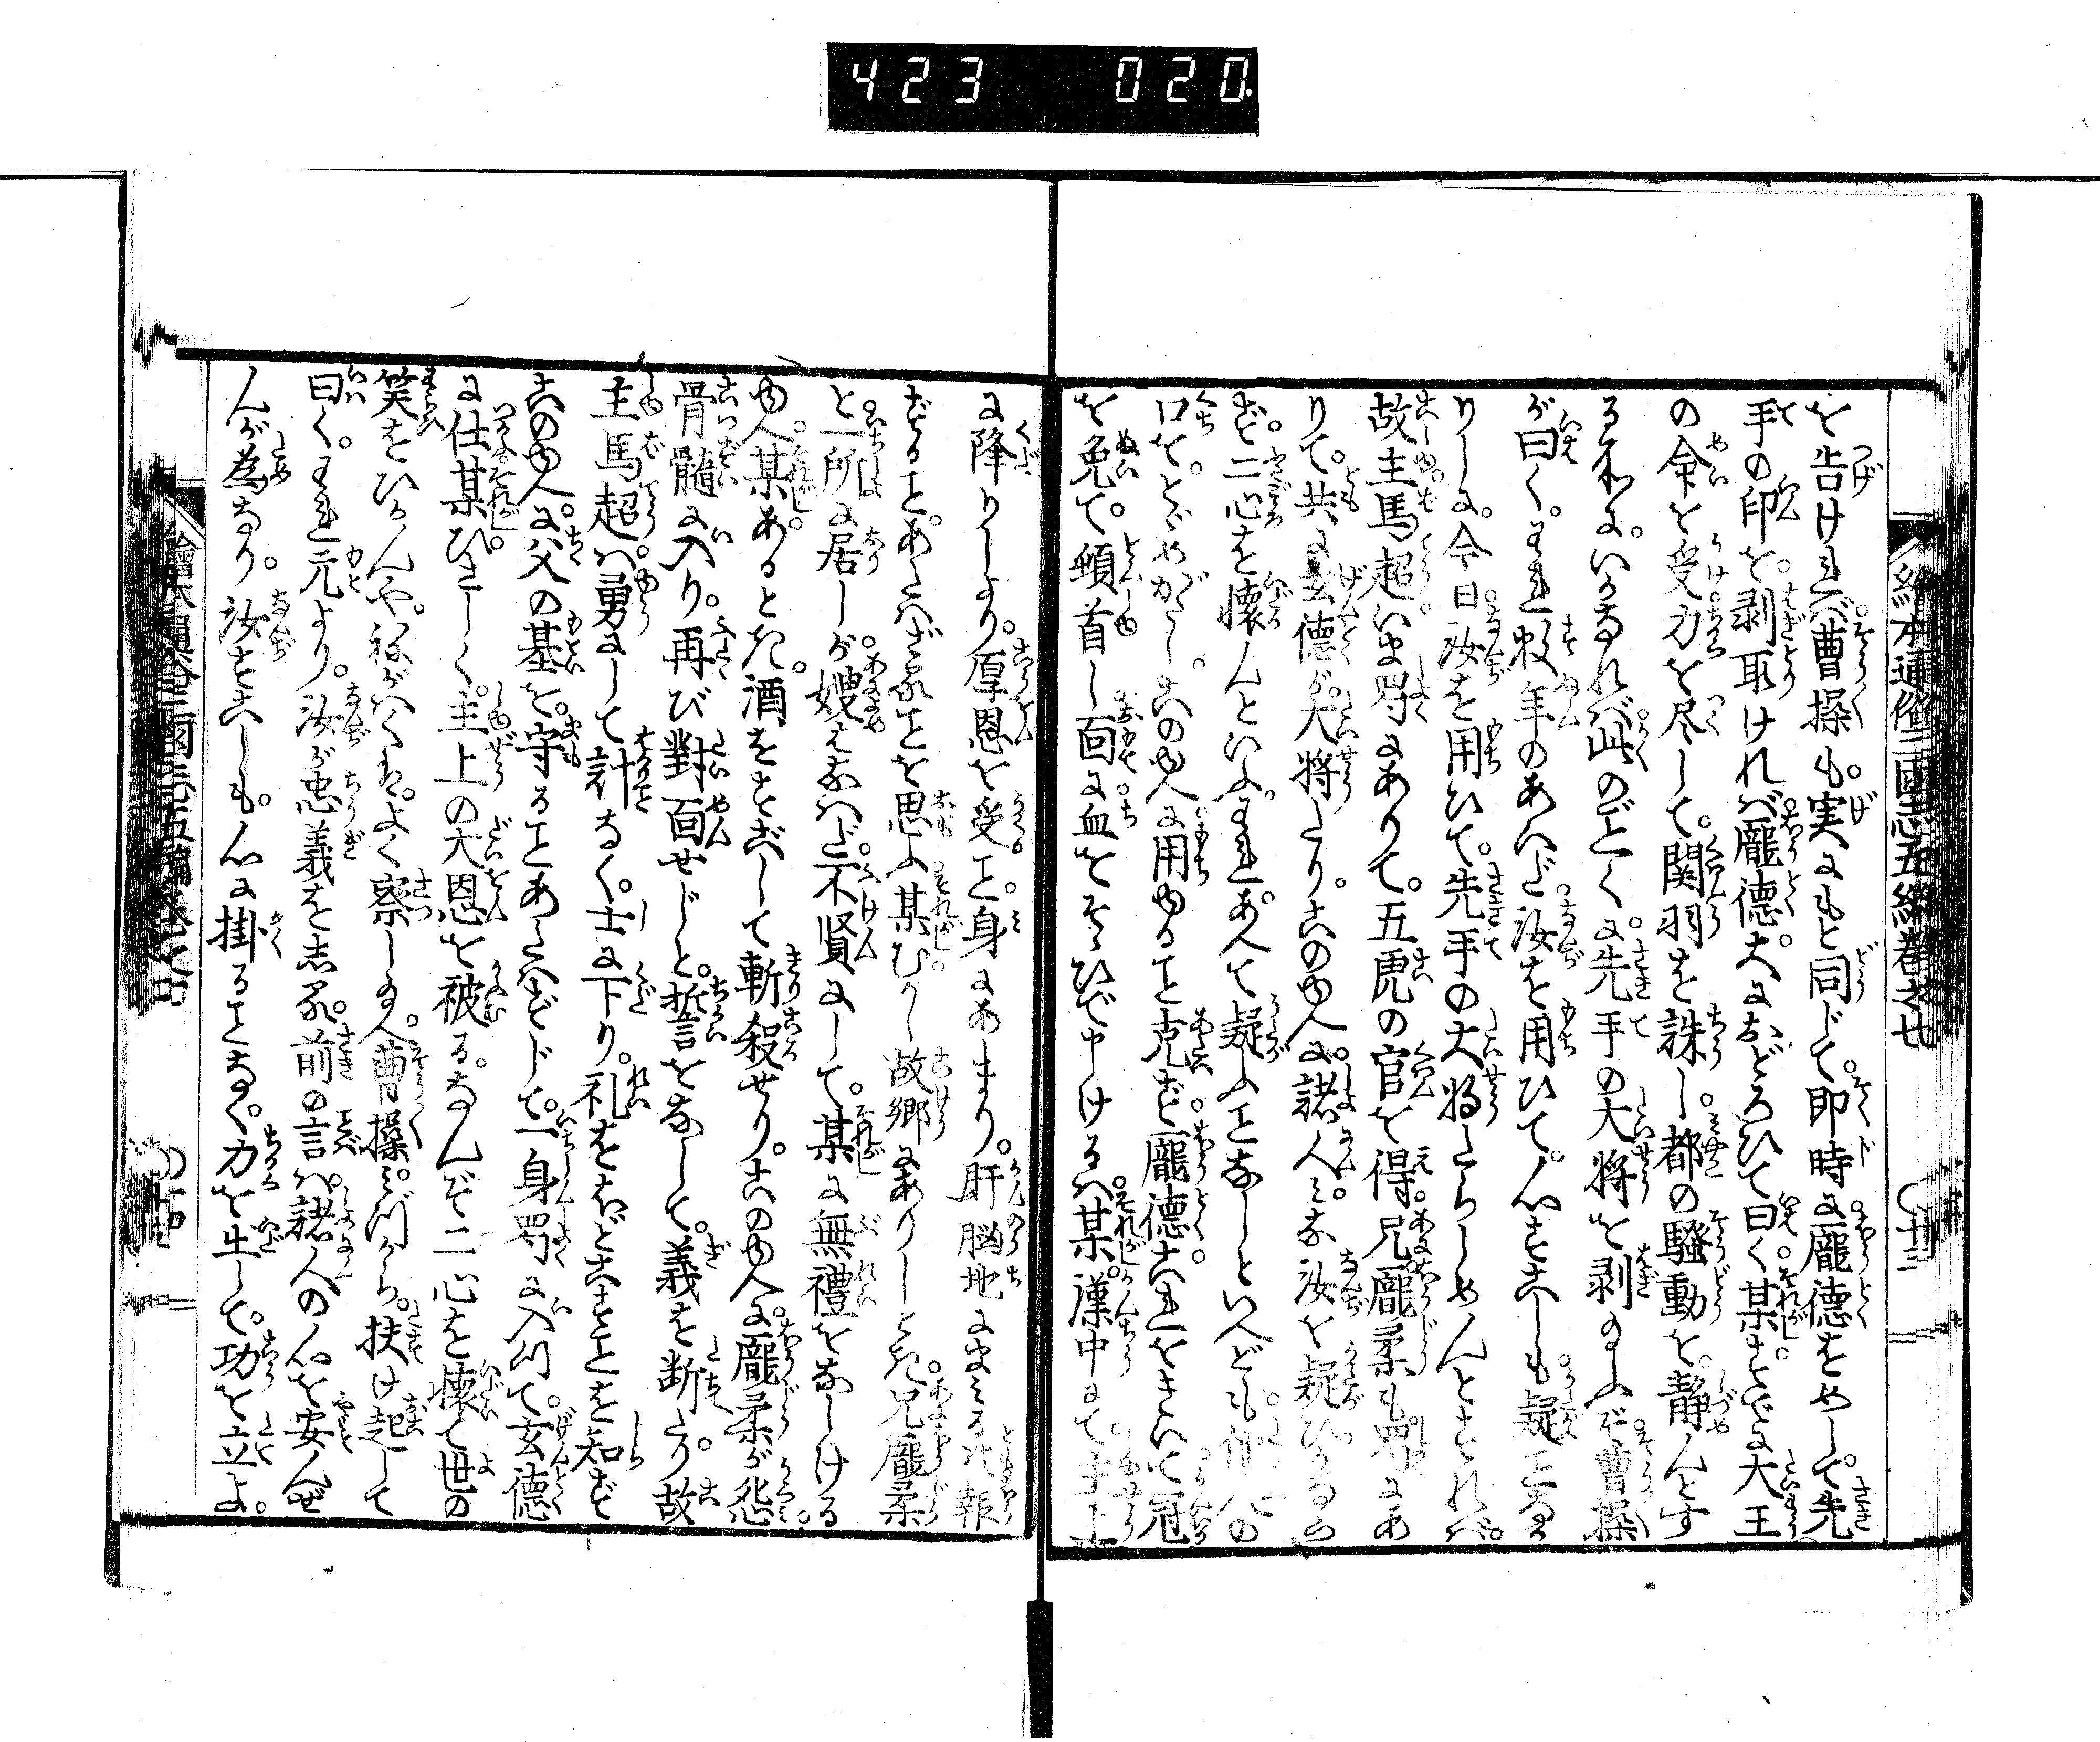 423 020
繪本通俗三國志五編卷之七
を告けれバ曹操も実にもと同じて即時に龐徳をめして先
手の印を剥取けれバ龐徳大におどろひて曰く某すでに大王
の命を受力を尽して関羽を誅し都の騒動を静んとす
るにいかなれバ此のごとく先手の大将を剥給ふぞ曹操
が曰くわれ数年のあいだ汝を用ひて心すこしも疑ことなか
りしに今日汝を用ひて先手の大将たらしめんとすれバ
故主馬超いま蜀にありて五虎の官を得兄龐柔も蜀にあ
りて共に玄徳が大将たりこのゆへに諸人みな汝を疑ひかなら
ず二心を懐んといふわれあへて疑ふことなしといへども他人の
口をとゞめがたしこのゆへに用ゆること克ず龐徳これをきいて冠
を免て頓首し面に血をそゝひで申けるハ某漢中にて主上
に降りしより厚恩を受こと身にあまり肝脳地にまみるとも報
ずることあたハざることを思ふ某むかし故郷にありしとき兄龐柔
と一所に居しが嫂はなハだ不賢にして某に無禮をなしける
ゆへ某あるとき酒をすごして斬殺せりこのゆへに龐柔が恐
骨髄に入り再び對面せじと誓をなして義を断たり故
主馬超ハ勇にして計なく士に下り礼をほどこすことを知ず
このゆへに父の基を守ることあたハずして一身蜀に入て玄徳
に仕某ひさしく主上の大恩を被るなんぞ二心を懐て世の
笑をひかんやねがハくハよく察し給へ曹操みづから扶け起して
曰くわれ元より汝が忠義をしる前の言ハ諸人の心を安んぜ
んが為なり汝すこしも心に掛ることなく力を出して功を立よ